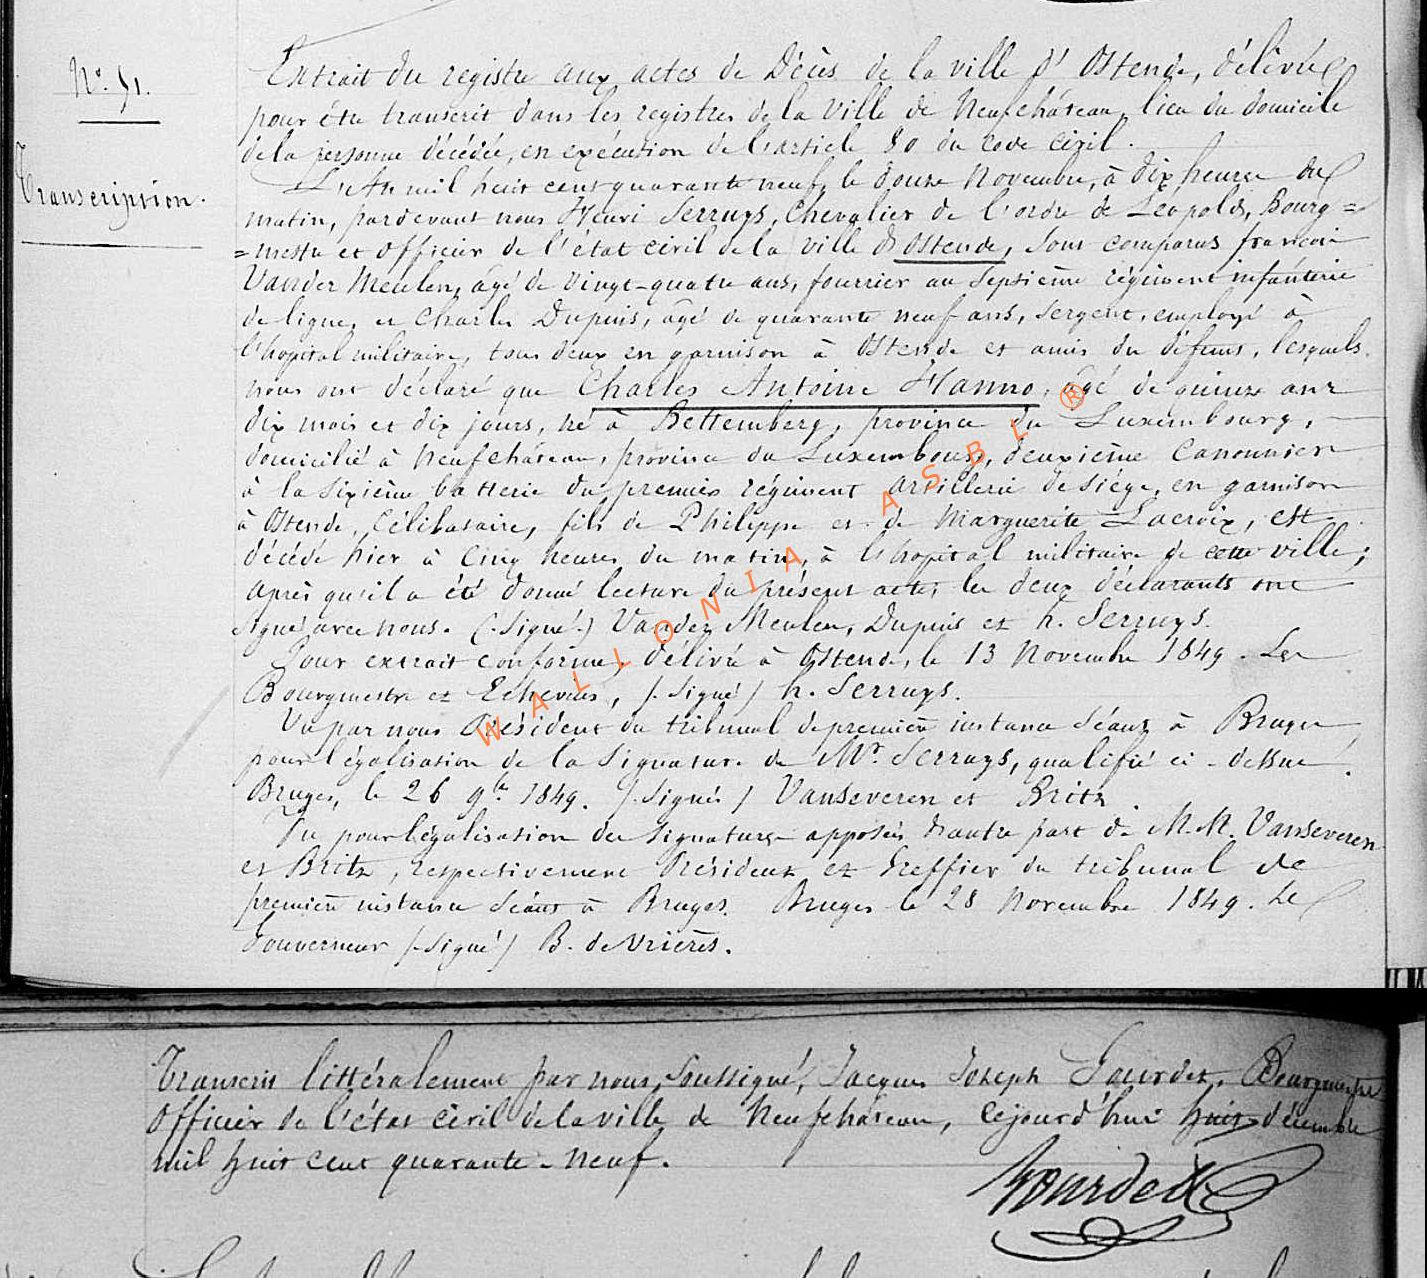 N° 51.
Transcription.
Extrait du registre aux actes de Décès de la ville d'Ostende, délivré
pour être transcrit dans les registres de la ville de Neufchâteau, lieu du domicile
de la personne décédée, en exécution de l'article 80 du code civil.
L'An mil huit cent quarante neuf, le douze Novembre, à dix heures du
matin, pardevant nous Henri Serruys, Chevalier de l'ordre de Léopold, Bourg=
=mestre et officier de l'état civil de la ville d'Ostende, sont comparus françois
Vander Meulen, âgé de Vingt-quatre ans, fourrier au septième régiment infanterie
de ligne, et Charles Dupuis, âgé de quarante neuf ans, sergent, employé à
l'hopital militaire, tous deux en garnison à Ostende et amis du défunt, lesquels
nous ont déclaré que Charles Antoine Hanno, âgé de quinze ans
dix mois et dix jours, né à Bettemberg, province du Luxembourg,
domicilié à Neufchâteau, province du Luxembourg, deuxième Canonnier
à la sixième batterie du premier régiment artillerie de siége, en garnison
à Ostende, Célibataire, fils de Philippe et de Marguerite Lacroix, est
décédé hier à Cinq heures du matin, à l'hopital militaire de cette ville;
après qu'il a été donné lecture du présent acte, les deux déclarants ont
signé avec nous. (Signé) Vander Meulen, Dupuis et h. Serruys.
Pour extrait conforme, délivré à Ostende, le 13 Novembre 1849. Les
Bourgmestre et Echevins, (signé) h. Serruys.
Vu par nous Président du tribunal de première instance séant à Bruges
pour légalisation de la signature de Mr. Serruys, qualifié ci-dessus.
Bruges, le 26 9bre 1849. (Signés) VanSeveren et Britz.
Vu pour légalisation des signatures apposées d'autre part de M.M. VanSeveren
et Britz, respectivement Président et Greffier du tribunal de
première instance séant à Bruges. Bruges le 28 Novembre 1849. Le
Gouverneur (signé) B. de Vrières.
WALLONIA ASBL ®
Transcrit littéralement par nous, soussigné, Jacques Joseph Gourdet, Bourgmestre
officier de l'état civil de la ville de Neufchâteau, cejourd'hui huit décembre
mil huit cent quarante-neuf.
Gourdet